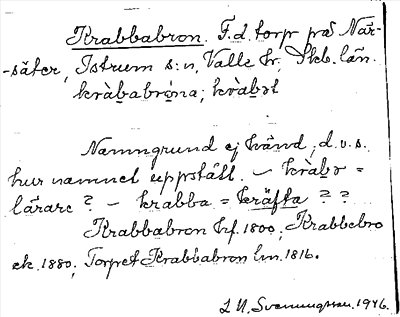 Krabbabron. F.d. torp på Når-
-säter, Istrum s:n, Valle hr, Skb. län.
kràbabróna; kràbət
Namngrund ej känd; d.v.s.
hur namnet uppstått. – kràbə =
lärare? – krabba = kräfta ? ?
Krabbabron hf. 1800; Krabbebro
ek. 1880; Torpet Krabbabron lm. 1816.
L M. Svenungsson. 1946.